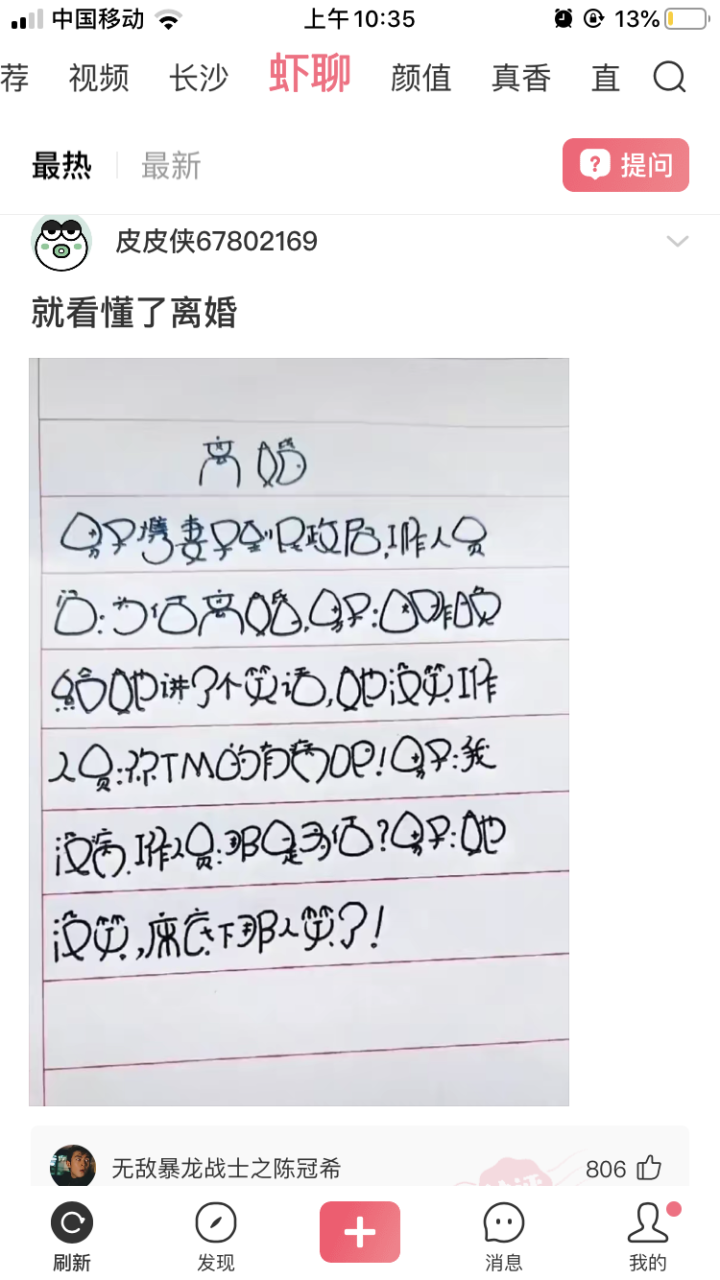 中国移动 上午10:35 13%
荐 视频 长沙 虾聊 颜值 真香 直
最热 最新 提问
皮皮侠67802169
就看懂了离婚
离婚
男子携妻子到民政局,工作人员
问:为何离婚,男子:昨晚
给她讲了个笑话,她没笑工作
人员:你TM的有病吧!男子:我
没病.工作人员:那是为何?男子:她
没笑,床底下那人笑了!
无敌暴龙战士之陈冠希 806
刷新 发现 消息 我的